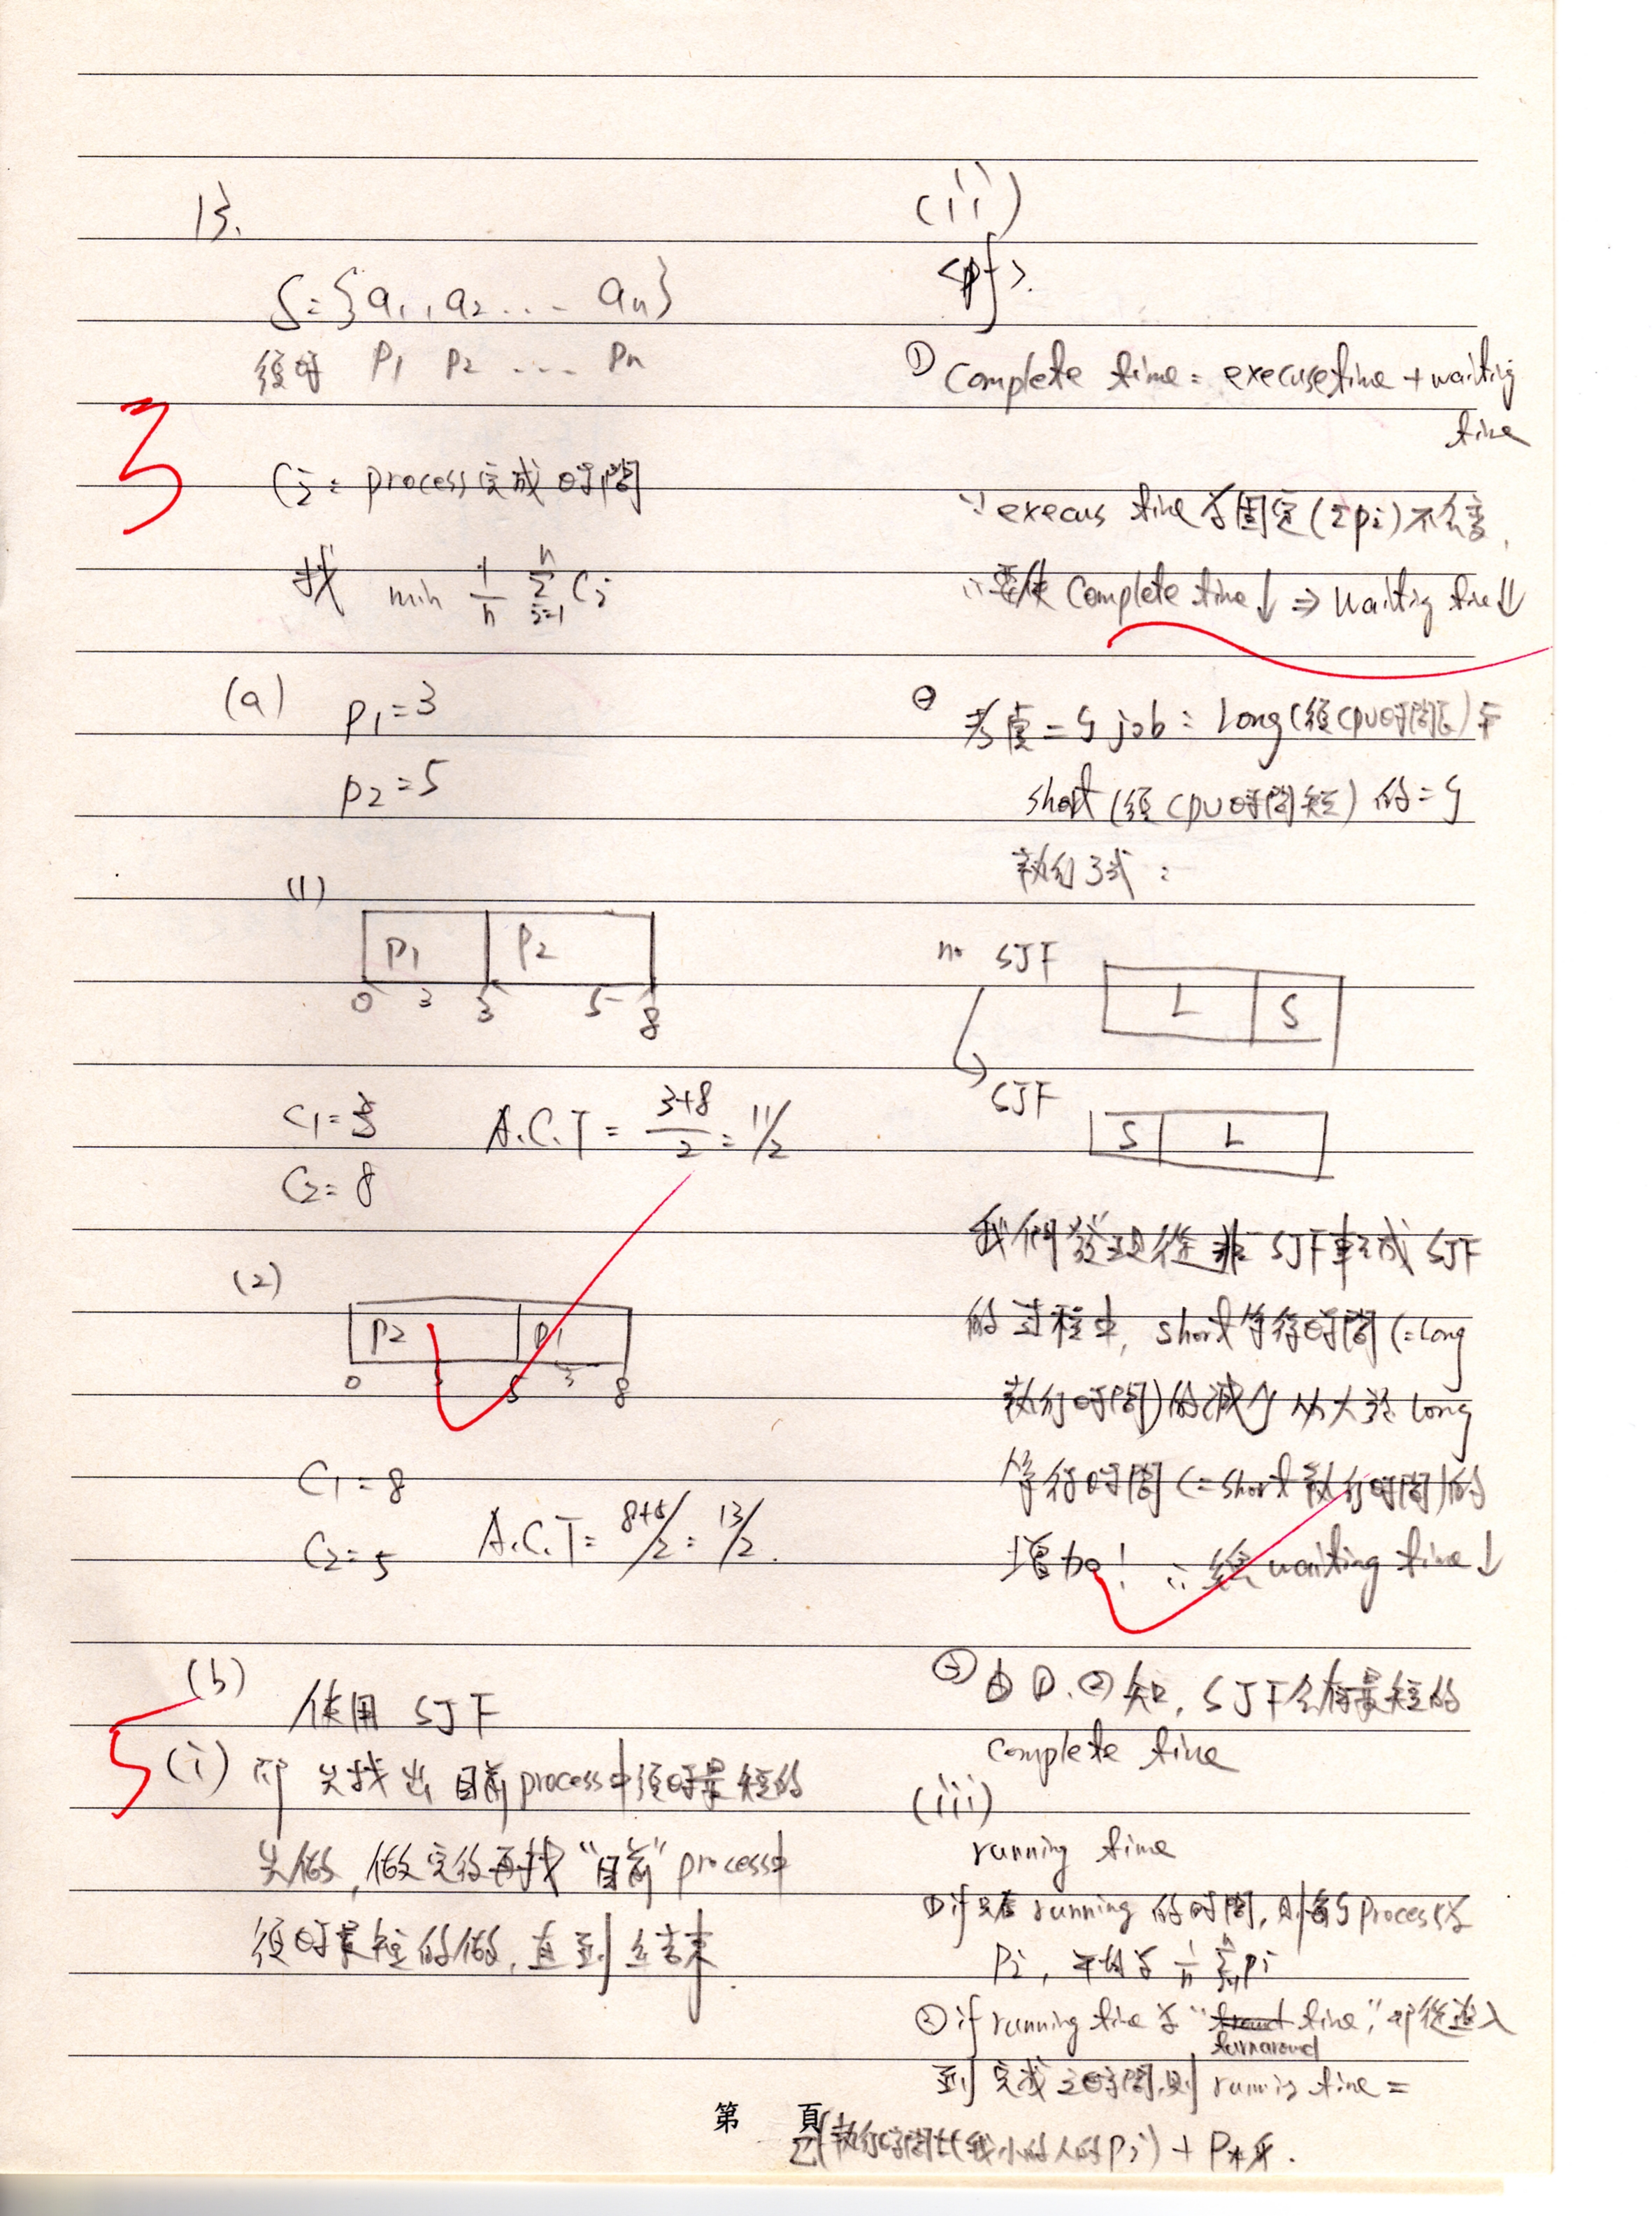 13.
S={a1, a2 ... an}
須時 P1 P2 ... Pn
3
Ci: process完成時間
找 min 1/n Σ(i=1..n) Ci
(a) P1=3
P2=5
(1)
P1 P2
0 3 3 5 8
C1=3 A.C.T = (3+8)/2 = 11/2
C2=8
(2)
P2 P1
0 5 3 8
C1=8
C2=5 A.C.T= (8+5)/2 = 13/2.
(b) 使用 SJF
5
(i) 即先找出目前process中須時最短的
先做, 做完後再找"目前"process中
須時最短的做, 直到結束.
(ii)
<pf>.
① Complete time = execuse time + waiting
time
∵ execus time 為固定(Σpi)不會變,
∴要使 Complete time↓ ⇒ waiting time↓
② 考慮二個 job: Long(須CPU時間長)與
short(須CPU時間短) 的二個
執行方式:
no SJF
L S
SJF
S L
我們發現從非SJF轉成 SJF
的過程中, short等待時間(=long
執行時間)的減少必大於long
等待時間(=short執行時間)的
增加! ∴總waiting time↓
③ 由①.②知, SJF会有最短的
complete time
(iii)
running time
①if 只看 running 的時間, 則每個process為
Pi, 平均為 1/n Σ pi
②if running time 為 "turnaround time", 即從進入
到完成之時間, 則 running time =
Σ(執行時間比我小的人的Pi) + P
第 頁